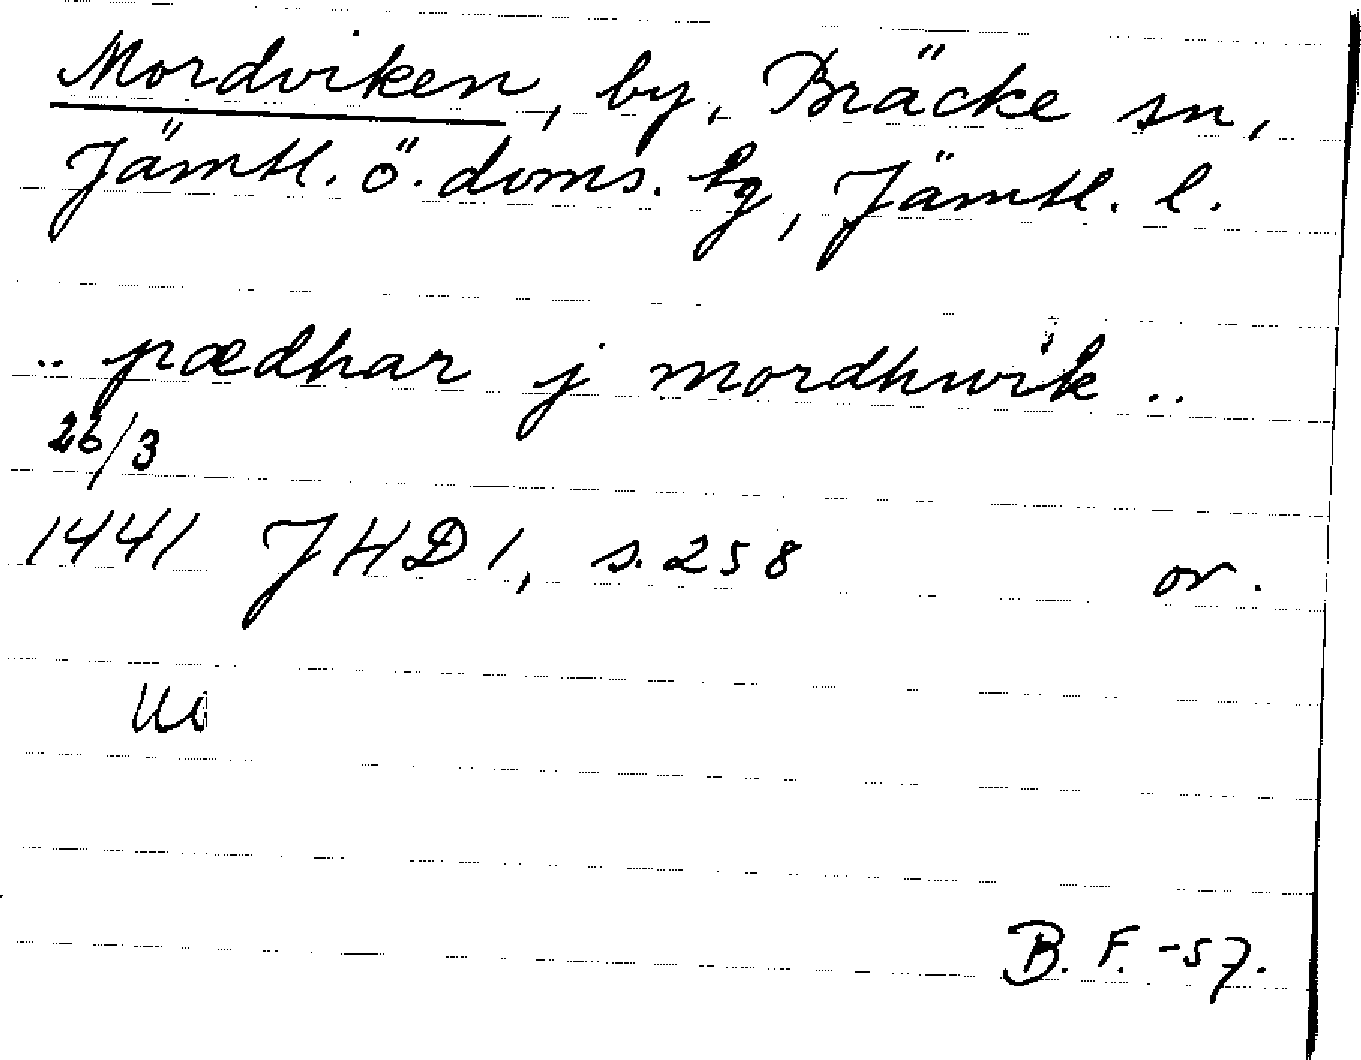 Mordviken, by, Bräcke sn,
Jämtl. ö. doms. hg, Jämtl. l.
.. pædhar j mordhwik ..
26/3
1441 JHD 1, s. 258 or.
B. F. -57.